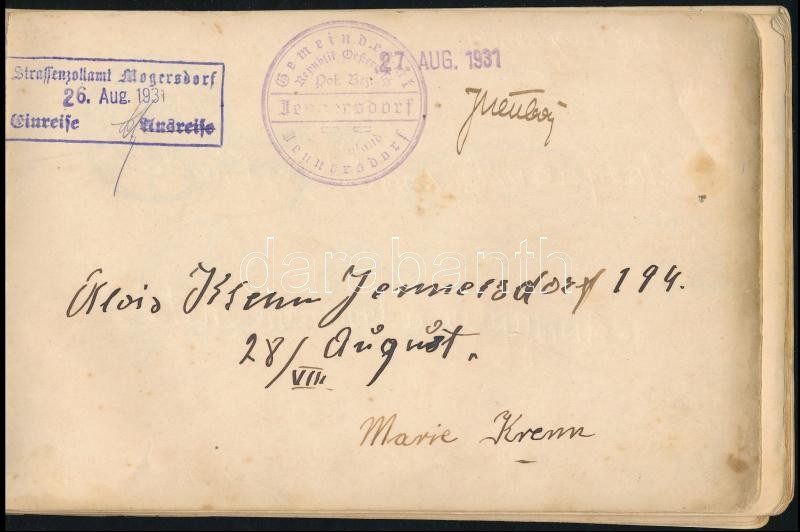 Strassenzollamt Mogersdorf
26. Aug. 1931
Einreise Ausreise
Gemeindeamt
Republik Oesterreich
Pol. Bez.
Jennersdorf
Jennersdorf
27. AUG. 1931
Alois Krenn Jennersdorf 194.
28/VIII August.
Marie Krenn
darabanth